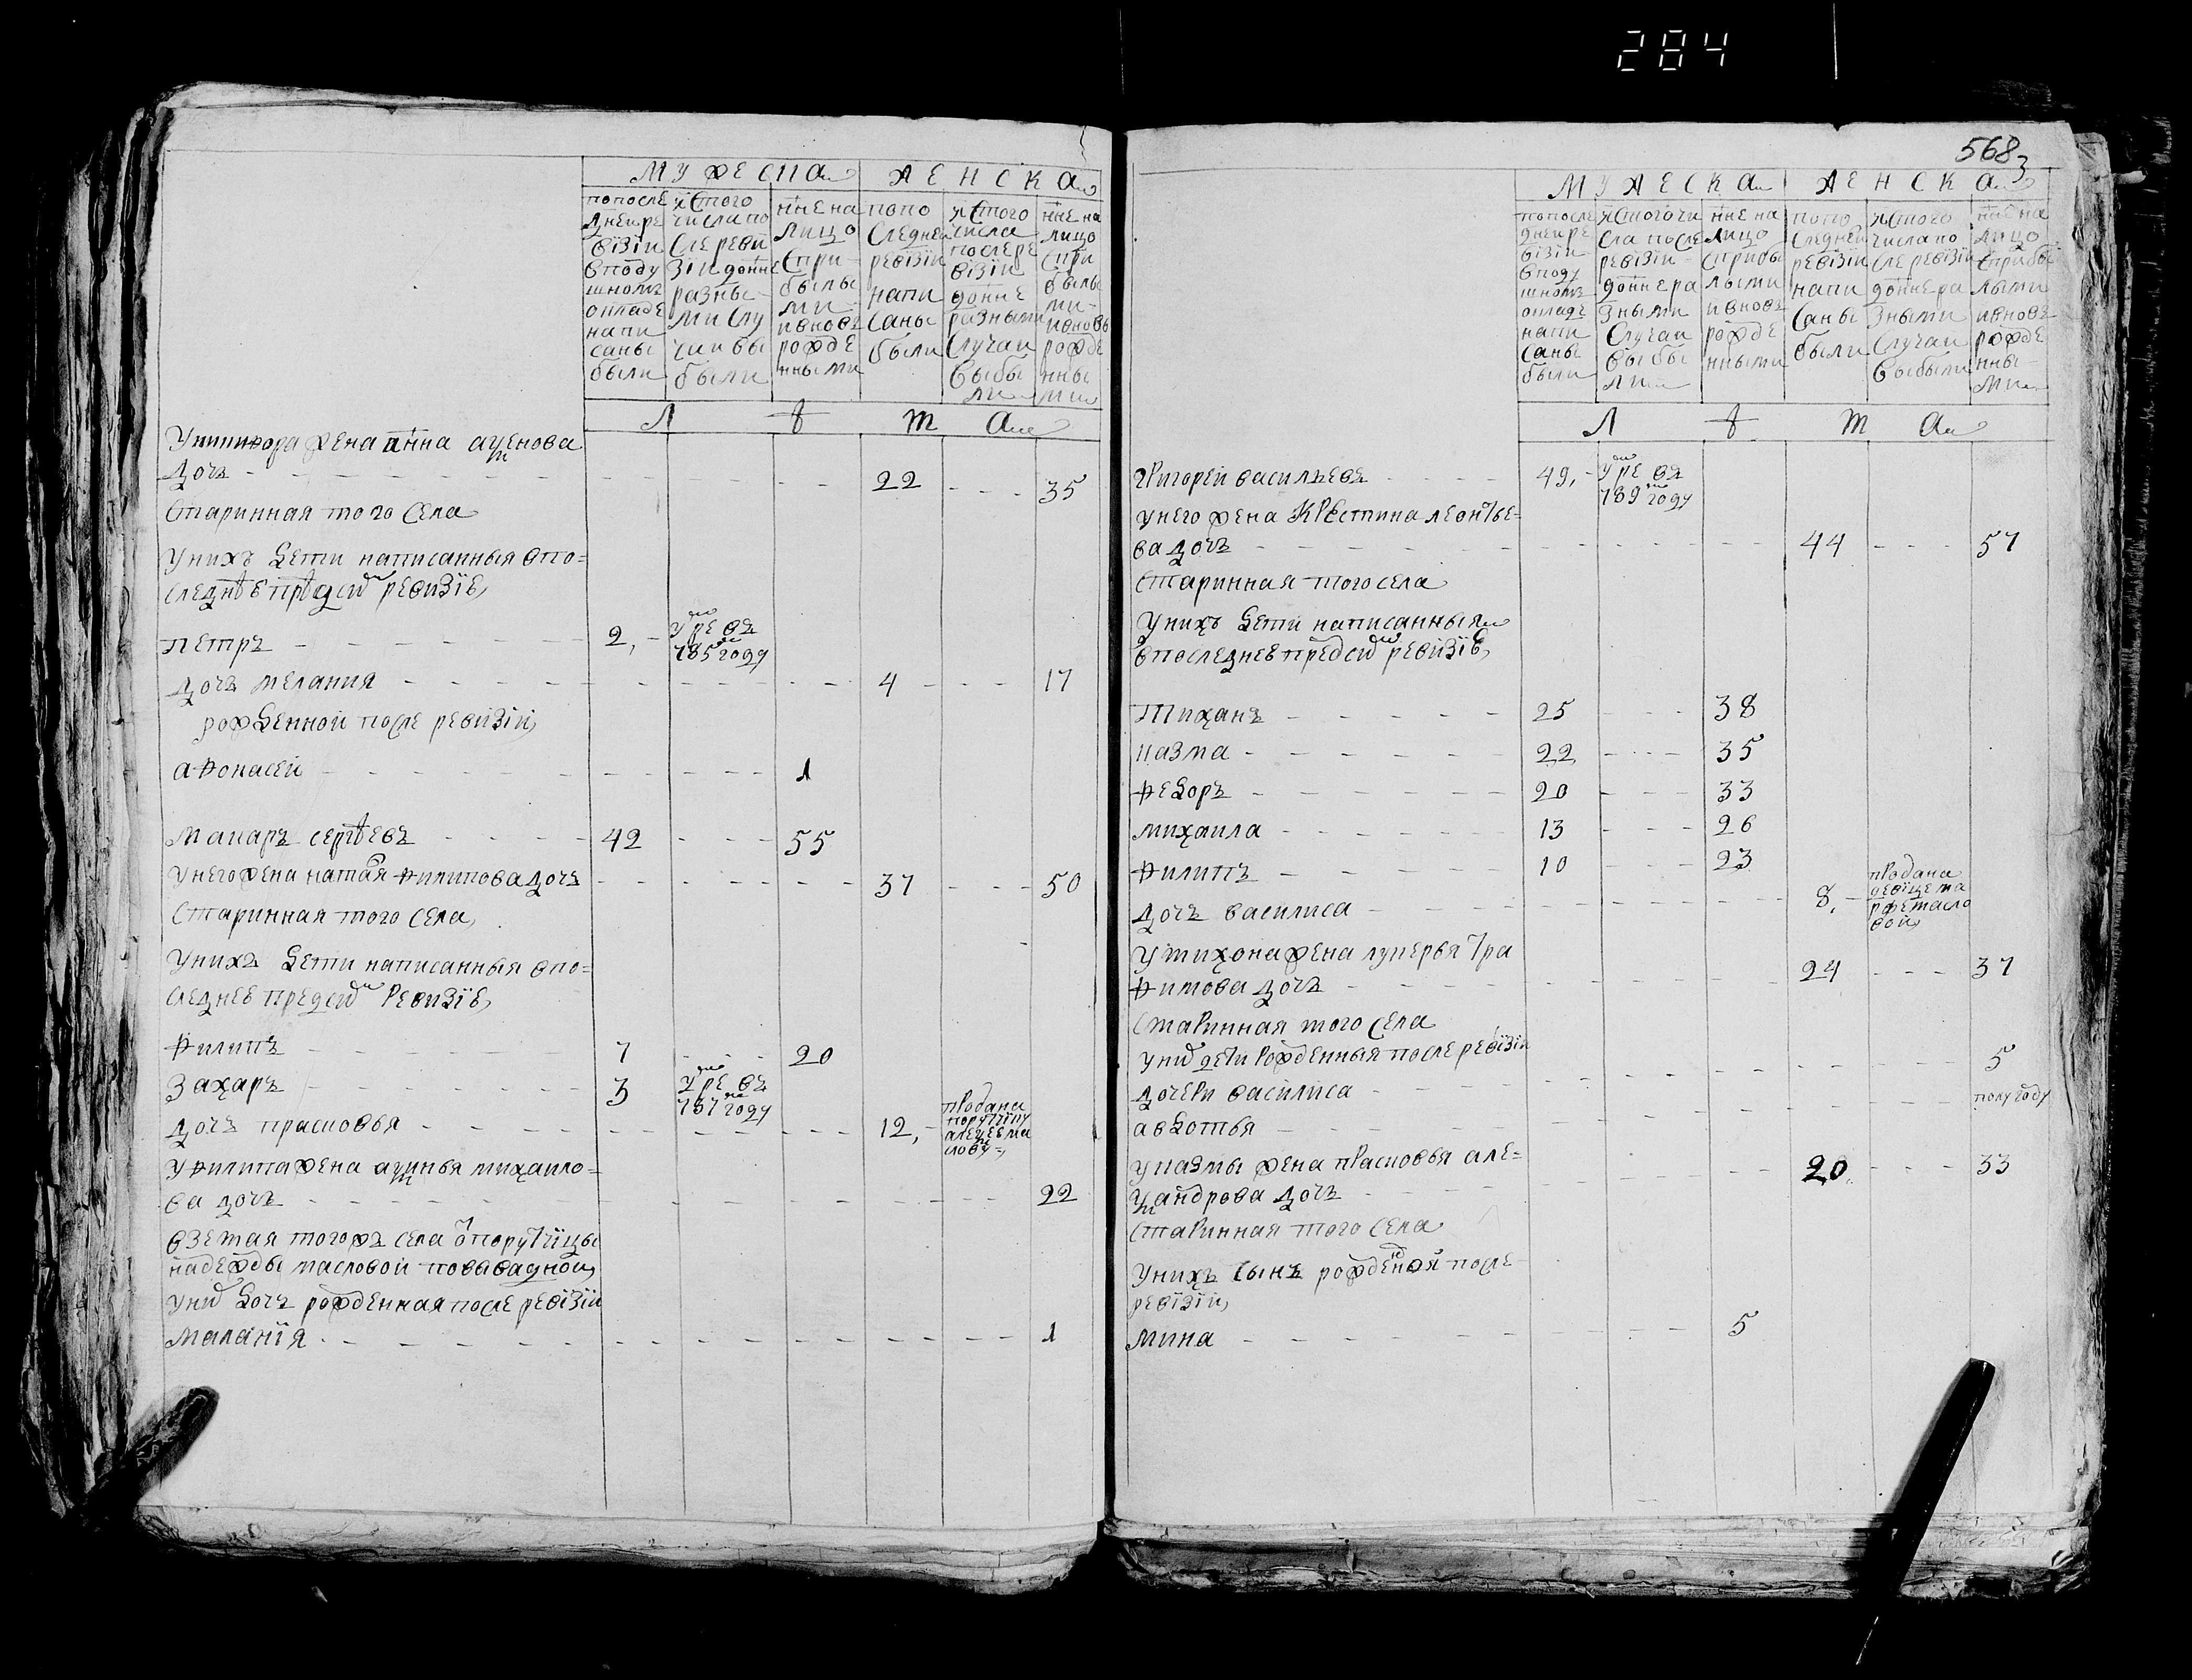 284
мужеска
женска
попосле
днеи ре
визiи
вподу
шномъ
окладе
напи
саны
были
ис того
числа по
сле реви
зiи доннѣ
разны
ми слу
чаи вы
были
ннѣ на
лицо
спри
былы
ми
ивновь
рожде
нными
попо
следнеи
ревизiи
напи
саны
были
ис того
числа
послере
визiи
доннѣ
разными
случаи
выбы
ли
ннѣ на
лицо
спри
былы
ми
ивновь
рожде
нны
ми
Л ѣ т а
Уникифора жена анна
дочь - 22 - 35
Старинная того села
Унихъ дети написанныя впо=
следнѣе предсим ревизiе,
петръ - 2, - умре въ
785м году
дочь мелания - 4 - 17
рожденной после ревизiи,
афонасеи - 1
Макаръ сергѣевъ - 42 - 55
Унего жена наталя филипова дочь - 37 - 50
Старинная того села,
Унихъ дети написанныя впо=
следнев предсим ревизiе,
филипъ - 7 - 20
Захаръ - 3 умре въ
787м году
дочь прасковья - 12, - продана
порутчiку
алексѣю ма
слову =,
Уфилипа жена аксинья михаило=
ва дочь - 22
взетая тогожъ села от порутчiцы
надежды масловой
уних дочь рожденная после ревизiи
Маланiя - 1
568
мужеска
женска
попосле
днеи ре
визiи
вподу
шномъ
окладъ
напи
саны
были
ис того чи
сла после
ревизiи
доннѣ ра
зными
случаи
выбы
ли
ннѣ на
лицо
сприбы
лыми
ивновь
рожде
нными
попо
следнеи
ревизiи
напи
саны
были
ис того
числа по
сле ревизiи
доннѣ ра
зными
случаи
выбыли
ннѣ на
лицо
сприбы
лыми
ивновь
рожде
нны
ми
Л ѣ т а
Григореи васильевъ - 49, - умре въ
789м году
унего жена Крестина леонтье=
ва дочь - 44 - 57
Старинная того села
Унихъ дети написанныя
впоследнев предсим ревизiе,
Тиханъ - 25 - 38
казма - 22 - 35
федоръ - 20 - 33
михаила - 13 - 26
филипъ - 10 - 23
дочь василиса - 8, - продана
девiце ма
рье масло
вой,
Утихона жена лукерья Тра
фимова дочь - 24 - 37
Старинная того села
Уних дети рожденныя после ревизiи
дочери василиса - 5
авдотья - полугоду
Указмы жена прасковья але=
ксандрова дочь - 20 - 33
Старинная того села
Унихъ сынъ рожденой после
ревiзiи,
мина - 5